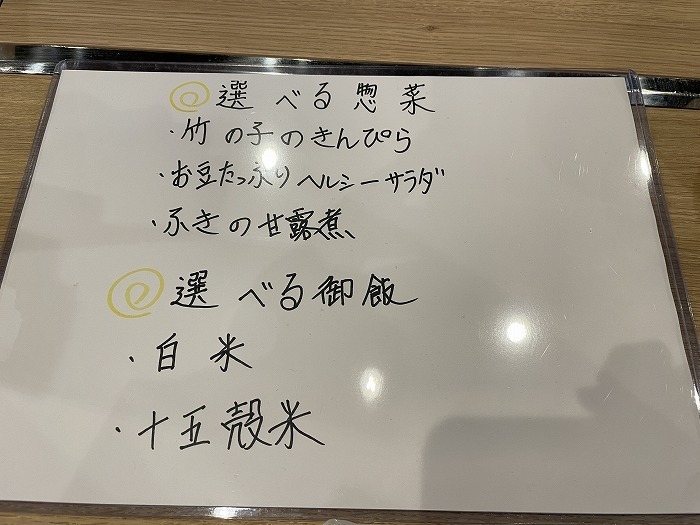 @選べる惣菜
・竹の子のきんぴら
・お豆たっぷりヘルシーサラダ
・ふきの甘露煮
@選べる御飯
・白米
・十五殻米